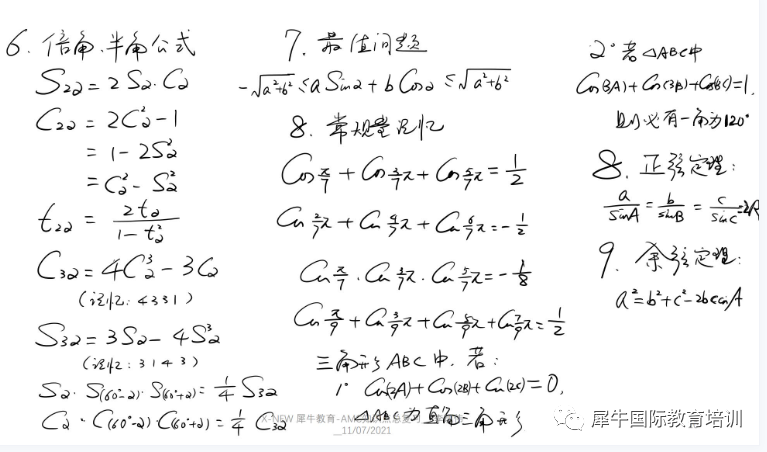 6. 倍角、半角公式
S2α = 2Sα·Cα
C2α = 2Cα² - 1
= 1 - 2Sα²
= Cα² - Sα²
t2α = 2tα / (1 - tα²)
C3α = 4Cα³ - 3Cα
(记忆: 4331)
S3α = 3Sα - 4Sα³
(记忆: 3143)
Sα·S(60°-α)·S(60°+α) = 1/4 S3α
Cα·C(60°-α)·C(60°+α) = 1/4 C3α
7. 最值问题
-√(a²+b²) ≤ a Sinα + b Cosα ≤ √(a²+b²)
8. 常规量记忆
Cos π/7 + Cos 3/7 π + Cos 5/7 π = 1/2
Cos 2/7 π + Cos 4/7 π + Cos 6/7 π = -1/2
Cos π/7 · Cos 3/7 π · Cos 5/7 π = -1/8
Cos π/9 + Cos 3/9 π + Cos 5/9 π + Cos 7/9 π = 1/2
三角形ABC中, 若:
1° Cos(2A) + Cos(2B) + Cos(2C) = 0,
△ABC为直角三角形
2° 若△ABC中
Cos(3A) + Cos(3B) + Cos(3C) = 1,
则必有一角为120°
8. 正弦定理:
a/sinA = b/sinB = c/sinC = 2R
9. 余弦定理:
a² = b² + c² - 2bc cosA
X-NEW 犀牛教育-AM
_11/07/2021
犀牛国际教育培训